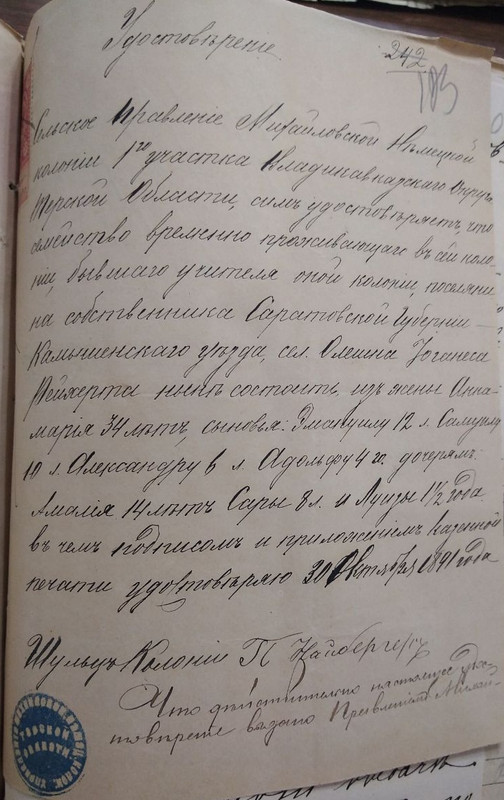 Удостовѣреніе
242
183
Сельское Правленіе Михайловской Нѣмецкой
колоніи 1го участка Владикавказскаго Округа
Терской Области, симъ удостовѣряетъ, что
семейство временно проживающаго въ сей коло-
ніи, бывшаго учителя оной колоніи, поселяни
на собственника Саратовской Губерніи
Камышенскаго уѣзда, сел. Олешна Іоганеса
Рейхерта нынѣ состоитъ, изъ жены Анна-
марія 34 лѣтъ, сыновья: Эмануилу 12 л. Самуилу
10 л. Александру 6 л. Адольфу 4 г. дочерямъ:
Амалія 14 лѣтъ Сары 8 л. и Луизы 1 1/2 года
въ чемъ подписомъ и приложеніемъ казенной
печати удостовѣряю 30 Октября 1891 года
Шульцъ Колоніи П
Что дѣйствительно настоящее удос-
товѣреніе выдано Правленіемъ Михай-